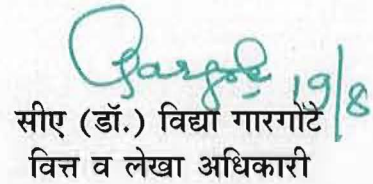 Gargote 19/8
सीए (डॉ.) विद्या गारगोटे
वित्त व लेखा अधिकारी